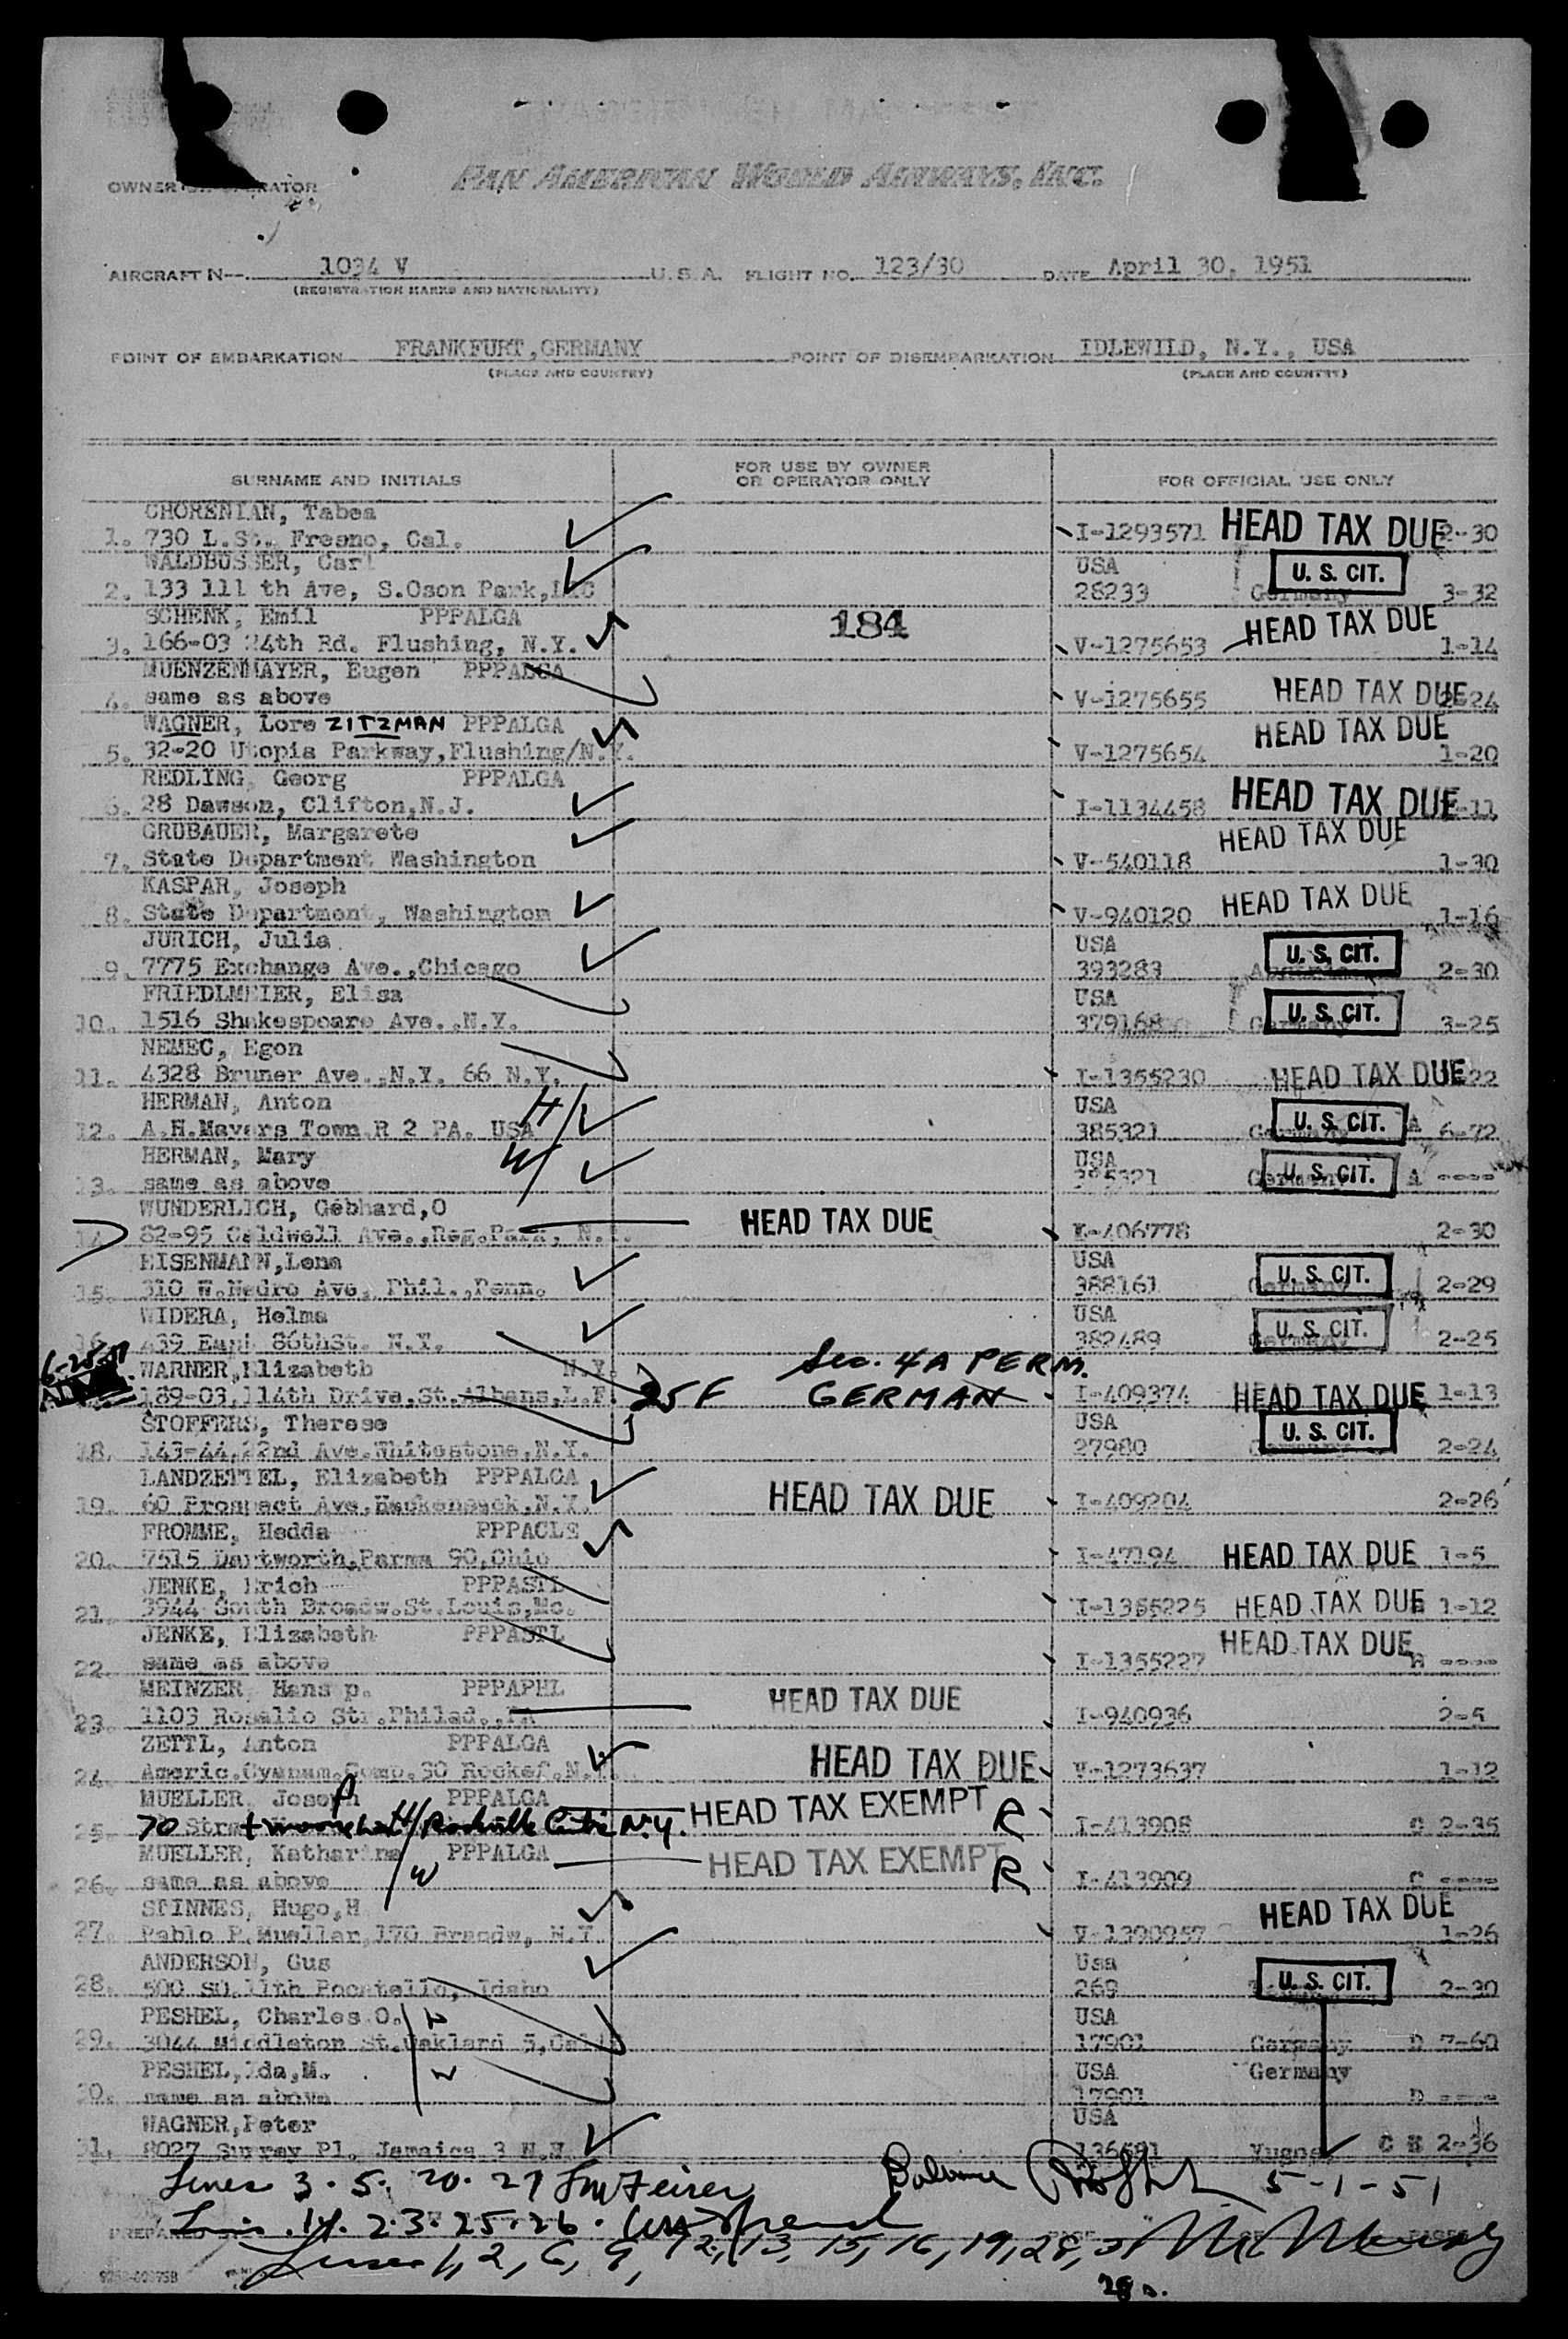 OWNER OR OPERATOR
PAN AMERICAN WORLD AIRWAYS, INC.
AIRCRAFT N-- 1034 V U.S.A. FLIGHT NO. 123/30 DATE April 30, 1951
(REGISTRATION MARKS AND NATIONALITY)
POINT OF EMBARKATION FRANKFURT, GERMANY POINT OF DISEMBARKATION IDLEWILD, N.Y., USA
(PLACE AND COUNTRY) (PLACE AND COUNTRY)
SURNAME AND INITIALS FOR USE BY OWNER OR OPERATOR ONLY FOR OFFICIAL USE ONLY
CHORENIAN, Tabea
1. 730 L.St. Fresno, Cal. I-1293571 HEAD TAX DUE 2-30
WALDBUSSER, Carl USA U. S. CIT.
2. 133 111 th Ave, S.Oson Park, 28233 Germany 3-32
SCHENK, Emil PPPALGA 184 HEAD TAX DUE
3. 166-03 24th Rd. Flushing, N.Y. V-1275653 1-14
MUENZENMAYER, Eugen PPPALGA
4. same as above V-1275655 HEAD TAX DUE 2-24
WAGNER, Lore ZITZMAN PPPALGA HEAD TAX DUE
5. 32-20 Utopia Parkway, Flushing/N.Y. V-1275654 1-20
REDLING, Georg PPPALGA
6. 28 Dawson, Clifton, N.J. I-1134458 HEAD TAX DUE -11
GRUBAUER, Margarete HEAD TAX DUE
7. State Department Washington V-540118 1-30
KASPAR, Joseph
8. State Department, Washington V-940120 HEAD TAX DUE 1-16
JURICH, Julia USA U. S. CIT.
9. 7775 Exchange Ave., Chicago 393283 2-30
FRIEDLMEIER, Elisa USA U. S. CIT.
10. 1516 Shakespeare Ave., N.Y. 379168 Germany 3-25
NEMEC, Egon
11. 4328 Bruner Ave., N.Y. 66 N.Y. I-1355230 HEAD TAX DUE 22
HERMAN, Anton H USA U. S. CIT.
12. A.H.Mayers Town R 2 PA. USA 385321 Germany A 6-72
HERMAN, Mary W USA U. S. CIT.
13. same as above 385321 Germany A ----
WUNDERLICH, Gebhard,O HEAD TAX DUE
14. 82-95 Caldwell Ave., Reg.Park, N.Y. I-406778 2-30
EISENMANN, Lena USA U. S. CIT.
15. 310 W.Nedro Ave. Phil., Penn. 388161 Germany 2-29
WIDERA, Helma USA U. S. CIT.
16. 439 East 86thSt. N.Y. 382489 Germany 2-25
WARNER, Elizabeth N.Y. Sec. 4A PERM.
189-03, 114th Drive, St. Albans, L.I. 25F GERMAN I-409374 HEAD TAX DUE 1-13
STOFFERS, Therese USA U. S. CIT.
18. 143-44, 22nd Ave. Whitestone, N.Y. 27980 Germany 2-24
LANDZETTEL, Elizabeth PPPALGA HEAD TAX DUE
19. 60 Prospect Ave, Hackensack, N.Y. I-409204 2-26
FROMME, Hedda PPPACLE
20. 7515 Dartworth, Parma 90, Ohio I-47194 HEAD TAX DUE 1-5
JENKE, Erich PPPASTL
21. 3944 South Broadw. St. Louis, Mo. I-1355225 HEAD TAX DUE B 1-12
JENKE, Elizabeth PPPASTL HEAD TAX DUE
22. same as above I-1355227 B ----
MEINZER Hans p. PPPAPHL HEAD TAX DUE
23. 1103 Rosalio Str. Philad., PA I-940936 2-5
ZETTL, Anton PPPALGA HEAD TAX DUE
24. Americ. Cyanam. Comp. 30 Rockef. N.Y. V-1273637 1-12
MUELLER, Joseph PPPALGA HEAD TAX EXEMPT R
25 70 H/ Rockville Centre N.Y. I-413908 C 2-35
MUELLER, Katharina PPPALGA HEAD TAX EXEMPT
26. same as above W R I-413909 C ----
STINNES, Hugo,H HEAD TAX DUE
27. Pablo P. Mueller, 170 Broadw, N.Y V-1390957 1-26
ANDERSON, Gus Usa U. S. CIT.
28. 500 SO. 11th Pocatello, Idaho 268 2-30
PESHEL, Charles O. H USA
29. 3044 Middleton St. Oakland 5, Cali 17901 Germany D 7-60
PESHEL, Ida,M. W USA Germany
30. same as above 17901 D ----
WAGNER, Peter USA
31. 8027 Surrey Pl. Jamaica 3 N.Y. Yugos 2-36
Lines 3. 5. 20. 27 5-1-51
Lines 14. 23. 25. 26.
Lines 1, 2, 6, 9, 12, 13, 15, 16, 19, 28, 31